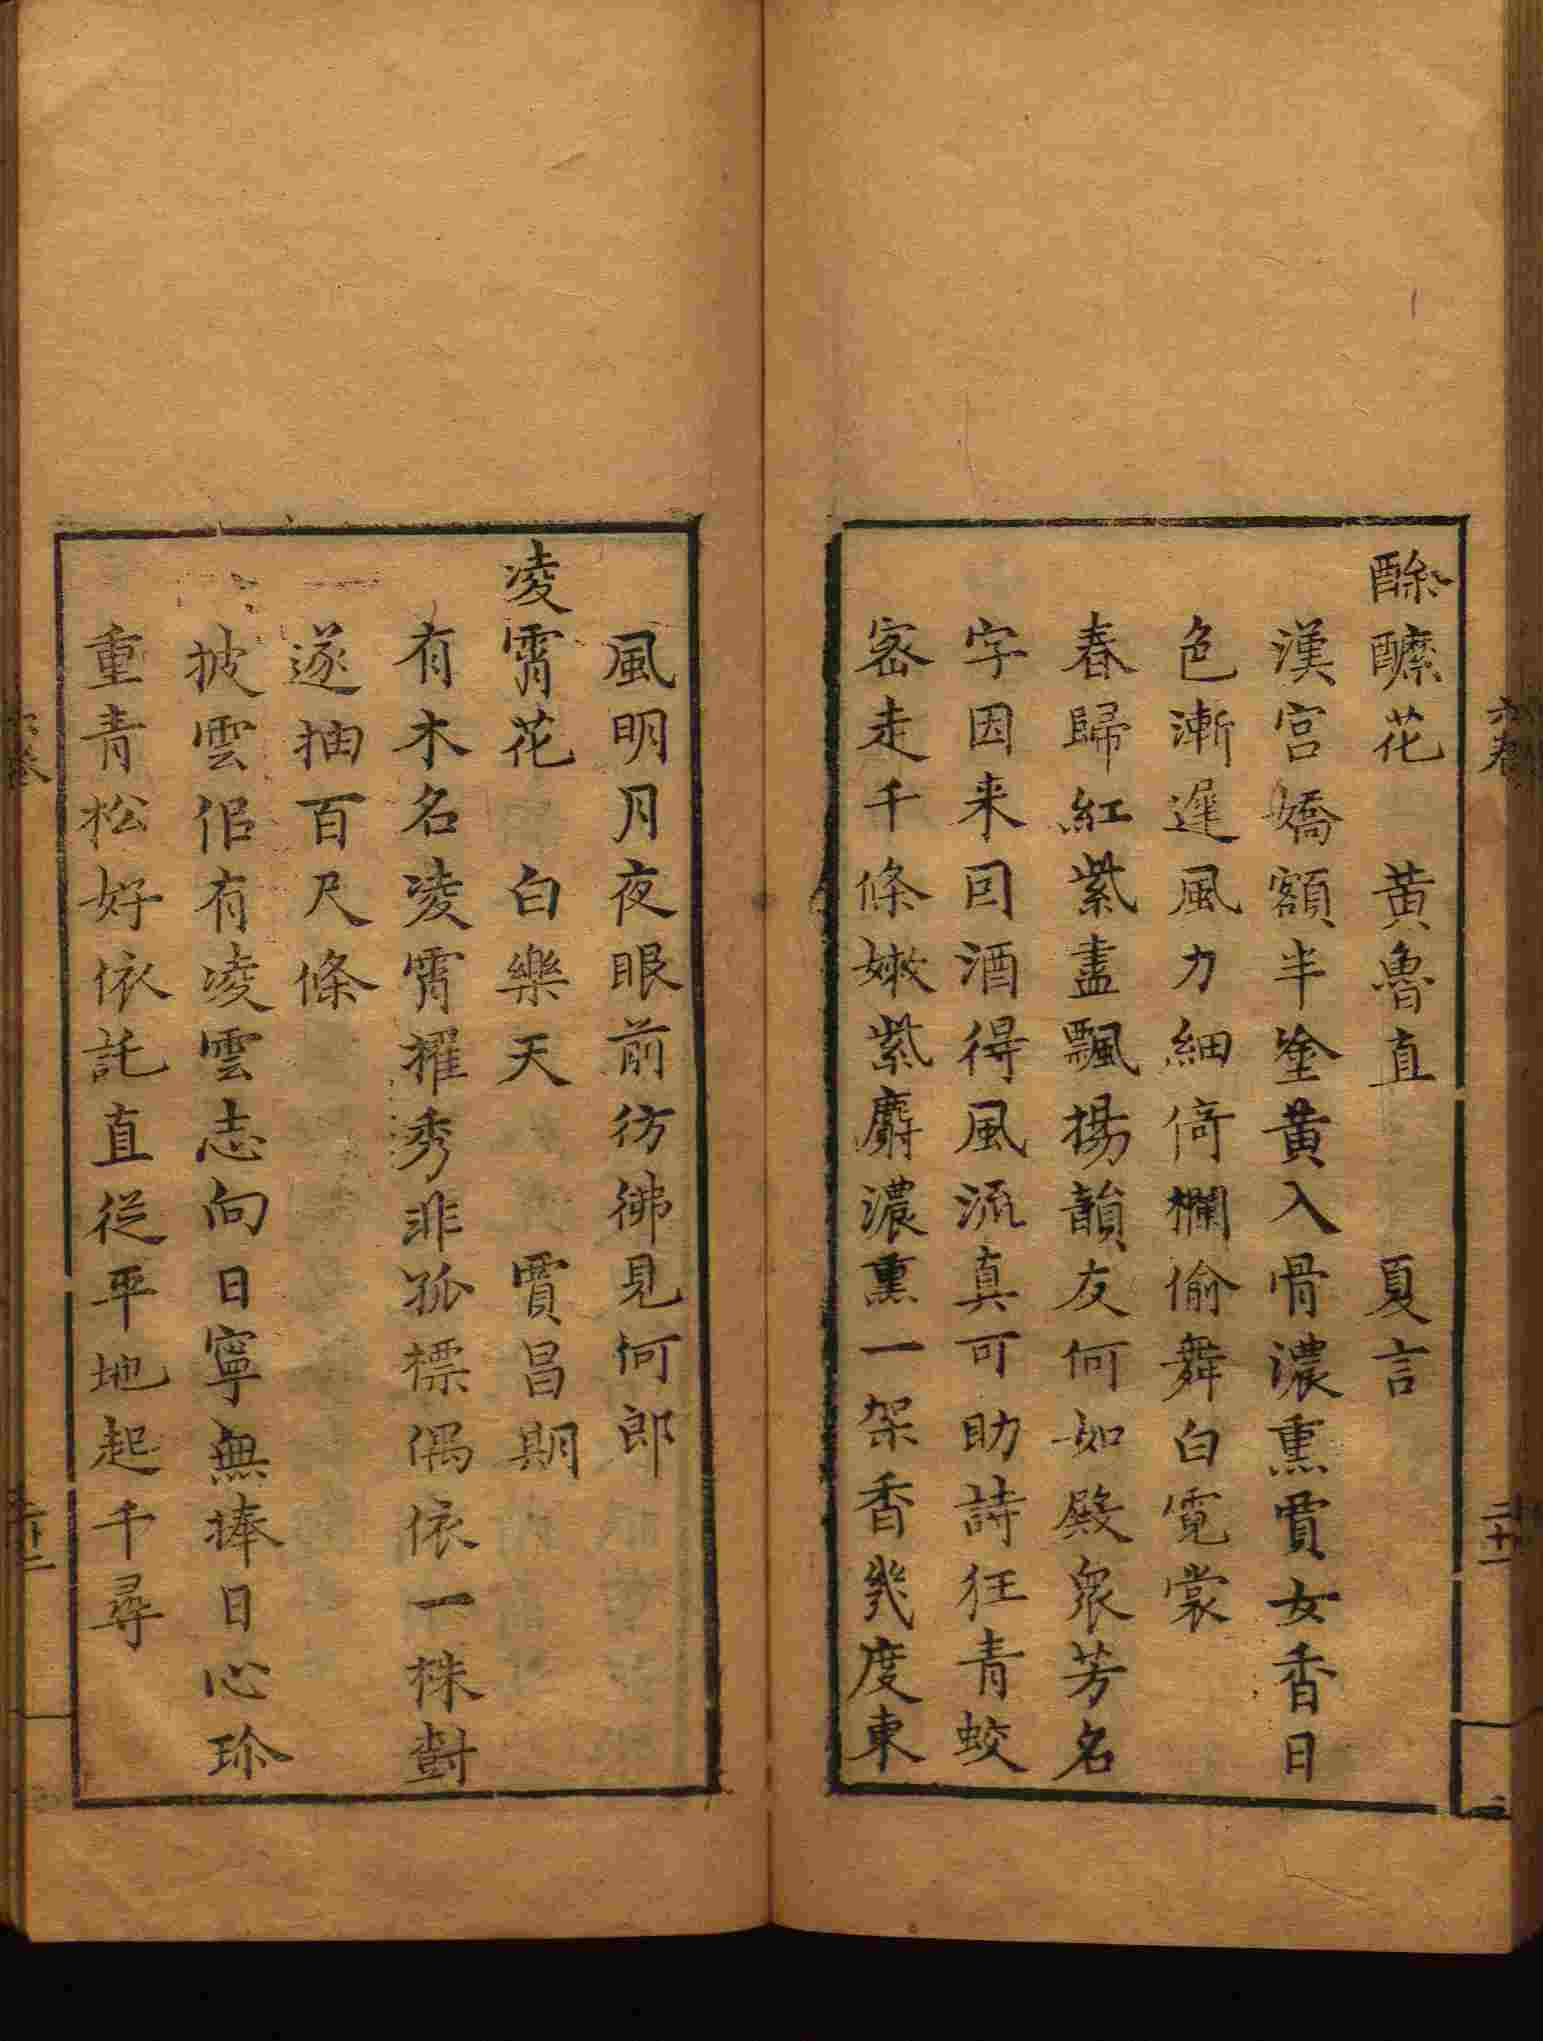 酴醾花　黃魯直　夏言
漢宮嬌額半塗黃入骨濃熏賈女香日
色漸遲風力細倚欄偷舞白霓裳
春歸紅紫盡飄揚韻友何如殿衆芳名
字因来回酒得風流真可助詩狂青蛟
宻走千條嫩紫麝濃熏一架香幾度東
風明月夜眼前彷彿見何郎
凌霄花　白樂天　賈昌期
有木名凌霄擢秀非孤標偶依一株樹
遂抽百尺條
披雲侣有凌雲志向日寧無捧日心珎
重青松好依託直從平地起千尋
六卷
二十一